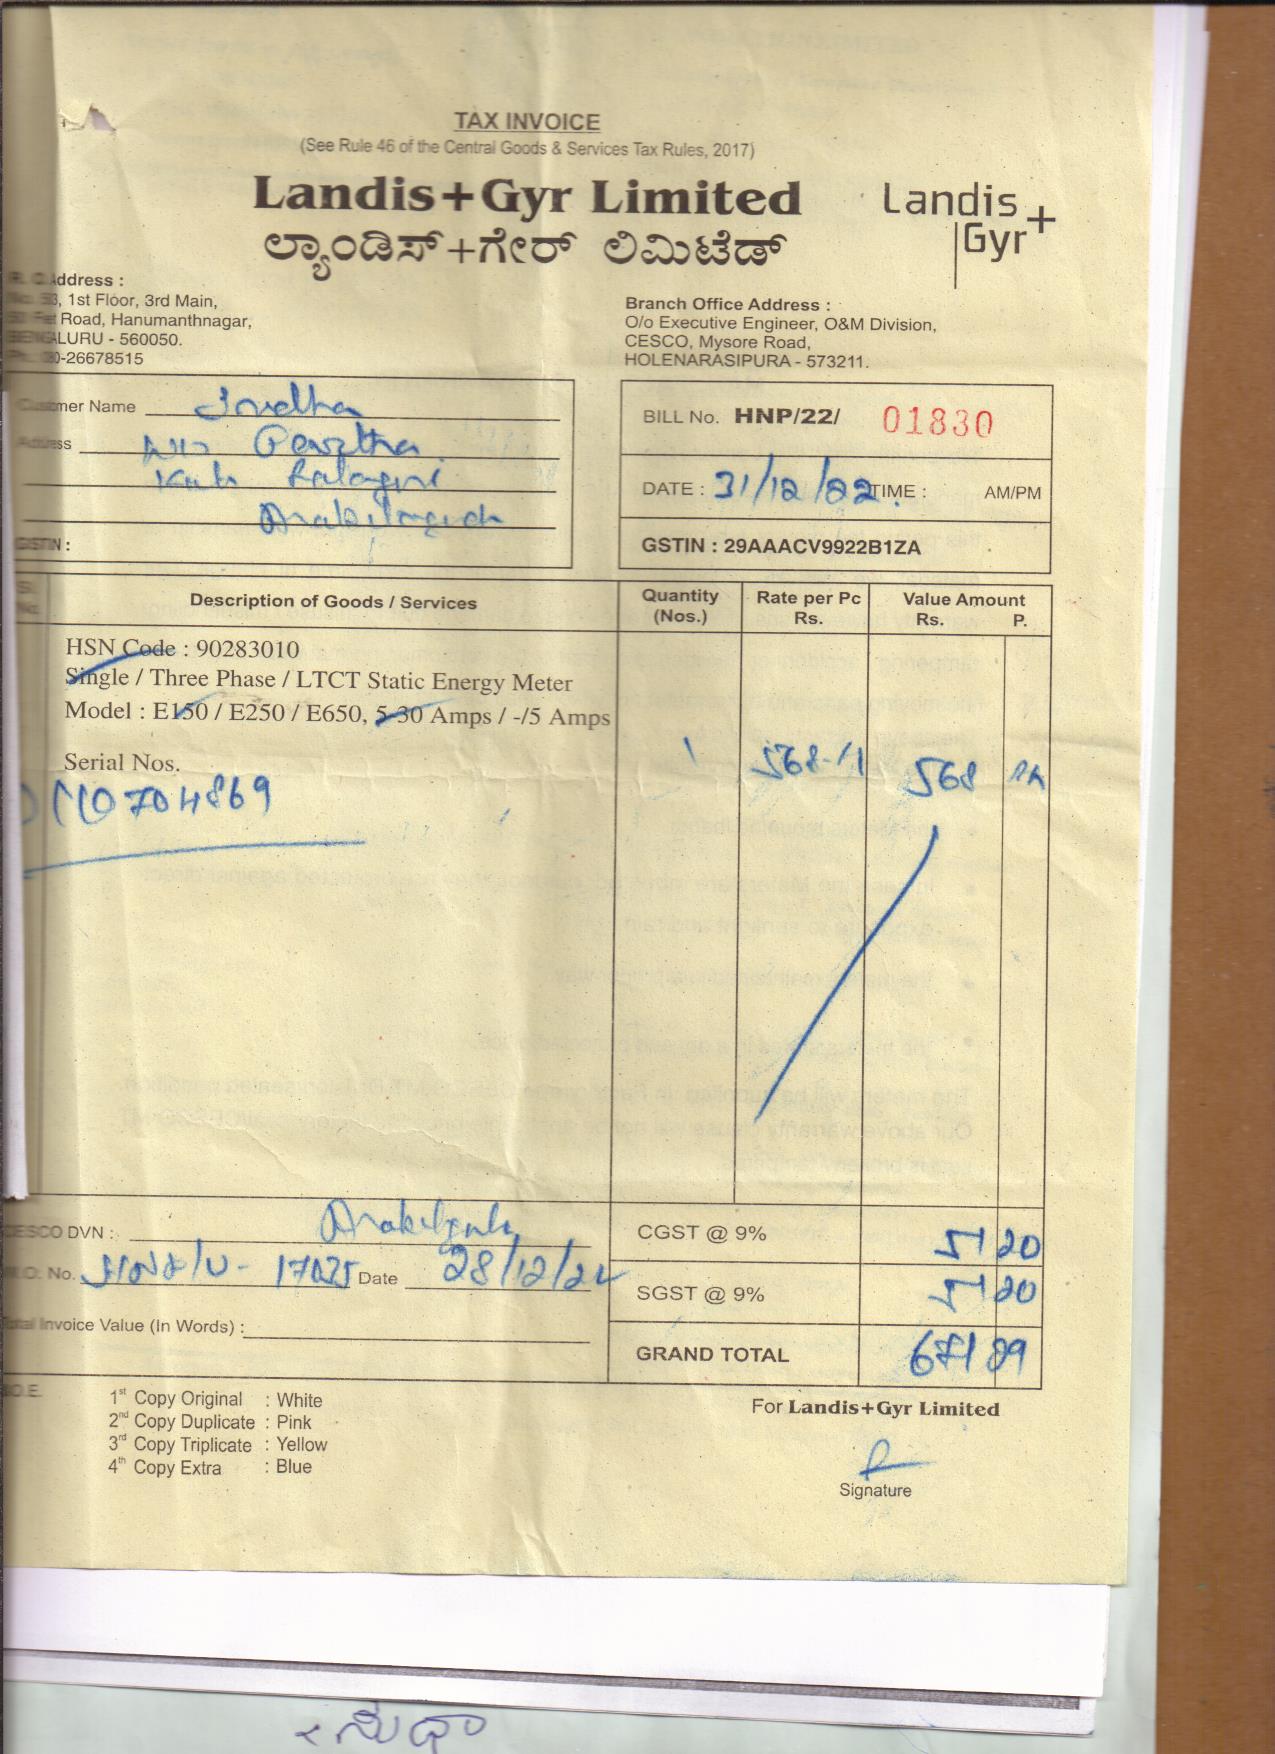 TAX INVOICE
(See Rule 46 of the Central Goods & Services Tax Rules, 2017)
Landis+Gyr Limited
ಲ್ಯಾಂಡಿಸ್+ಗೇರ್ ಲಿಮಿಟೆಡ್
Landis+
Gyr
Address :
1st Floor, 3rd Main,
Road, Hanumanthnagar,
BENGALURU - 560050.
Ph.: 080-26678515
Branch Office Address :
O/o Executive Engineer, O&M Division,
CESCO, Mysore Road,
HOLENARASIPURA - 573211.
Customer Name
Address
GSTIN :
BILL No. HNP/22/ 01830
DATE : 31/12/22 TIME : AM/PM
GSTIN : 29AAACV9922B1ZA
Sl. No. Description of Goods / Services Quantity (Nos.) Rate per Pc Rs. Value Amount Rs. P.
HSN Code : 90283010
Single / Three Phase / LTCT Static Energy Meter
Model : E150 / E250 / E650, 5-30 Amps / -/5 Amps
Serial Nos. 1 568 568
704869
CESCO DVN :
No. 17025 Date 28/12/22
Total Invoice Value (In Words) :
CGST @ 9% 51 20
SGST @ 9% 51 20
GRAND TOTAL 671 89
1st Copy Original : White
2nd Copy Duplicate : Pink
3rd Copy Triplicate : Yellow
4th Copy Extra : Blue
For Landis+Gyr Limited
Signature